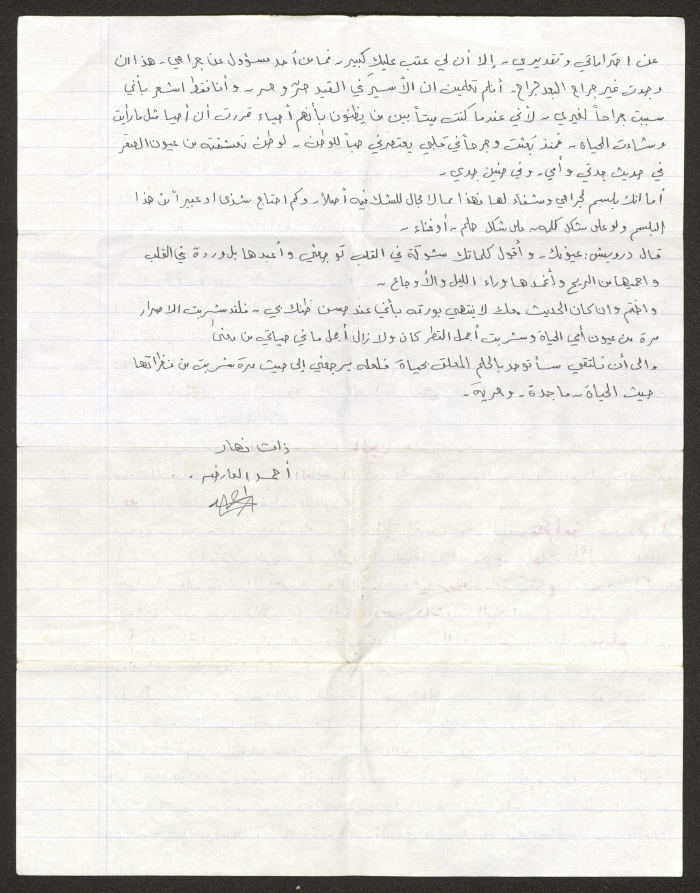 عن احتراماتي وتقديري، إلا أن لي عتب عليك كبير، فما من أحد مسؤول عن جراحي، هذا إن
وجدت غير جراح البعد جراح. أفلم تعلمين ان الأسير في القيد حرٌ وحر، وأنا فقط أشعر بأني
سببت جراحاً لغيري، لأني عندما كنت ميتاً بين من يظنون بأنهم أحياء قررت أن أحيا مثل ما رأيت
وشاءت الحياة، فمنذ بُعثت وجرحاً في قلبي يعتصرني حباً للوطن، لوطن تعشقته من عيون الصقر
في حديث جدتي وأمي، وفي حنين جدي.
أما انك بلسم لجراحي وشفاء لها فهذا ما لا مجال للشك فيه أصلاً، وكم احتاج شذى او عبيراً من هذا
البلسم ولو على شكل كلمه، على شكل حلم، أو غناء،
قال درويش: عيونك، وأقول كلماتك شوكة في القلب توجعني وأعبدها بل وردة في القلب
واحميها من الريح وأغمدها وراء الليل والأوجاع،
واختم وان كان الحديث معك لا ينتهي بورقه بأني عند حسن ظنك بي، فلقد شربت الاصرار
مرة من عيون أمي الحياة وشربت أجمل النظر كان ولا زال أجمل ما في حياتي من معنىً
والى أن نلتقي سأتوحد بالحلم المعلق بحياة فلعله يرجعني إلى حيث مرة شربت من نظراتها
حيث الحياة، ماجدة، وحرية.
ذات نهار
أحمد العارضه.